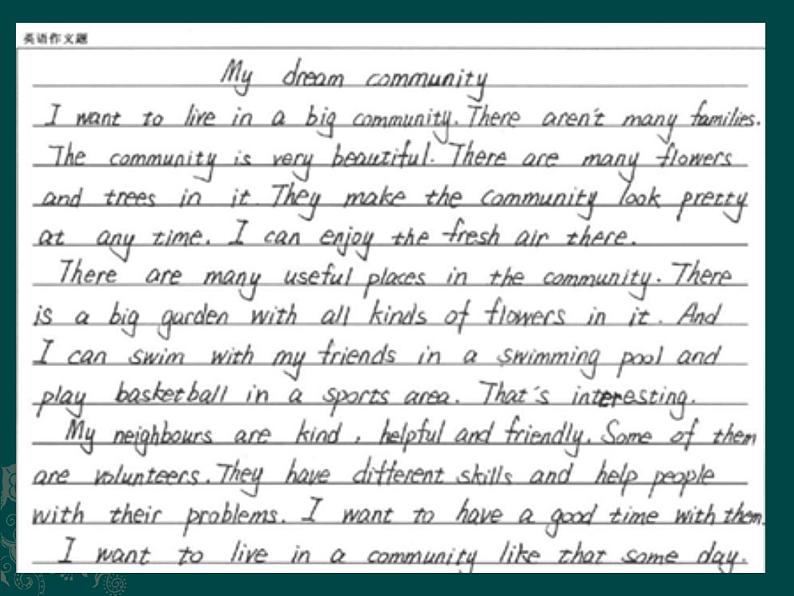 英语作文题
My dream community
I want to live in a big community. There aren't many families.
The community is very beautiful. There are many flowers
and trees in it. They make the community look pretty
at any time. I can enjoy the fresh air there.
There are many useful places in the community. There
is a big garden with all kinds of flowers in it. And
I can swim with my friends in a swimming pool and
play basketball in a sports area. That's interesting.
My neighbours are kind, helpful and friendly. Some of them
are volunteers. They have different skills and help people
with their problems. I want to have a good time with them.
I want to live in a community like that some day.